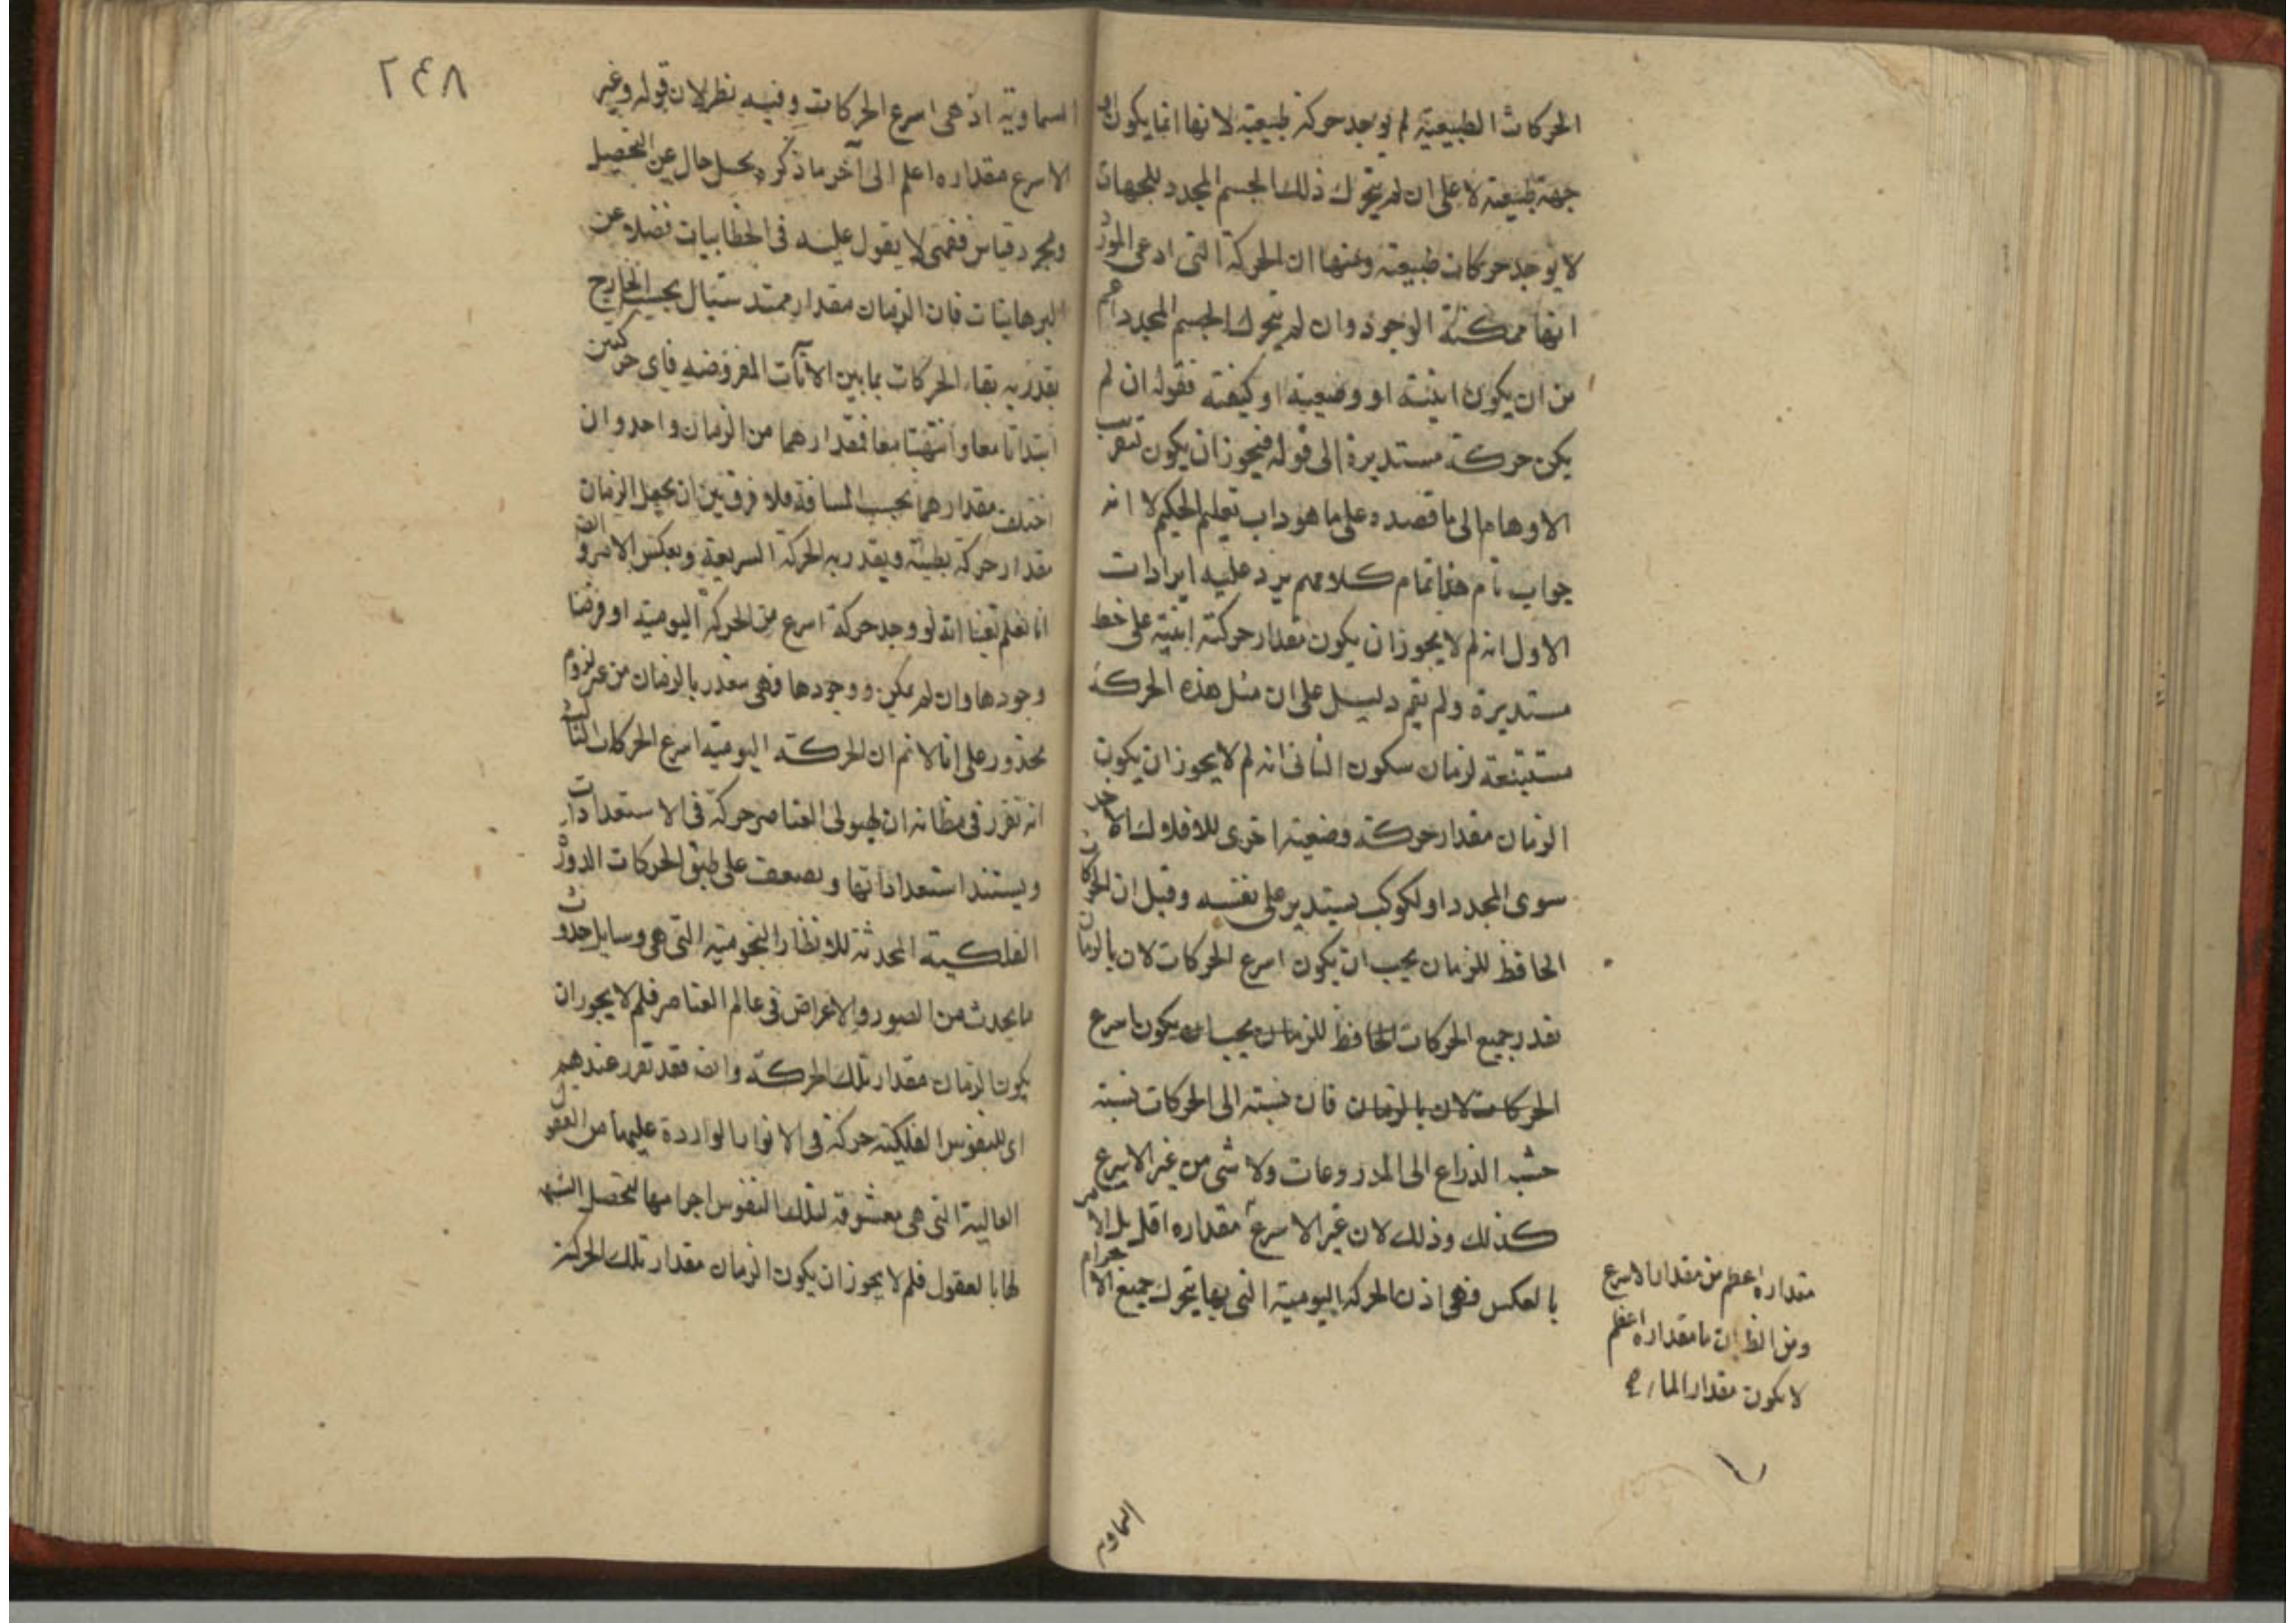 الحركات الطبيعية لم يوجد حركة طبيعية لانها انما يكون
جهة طبيعية لا على ان لم يتحرك ذلك الجسم المحدد للجهات
لا يوجد حركات طبيعية ومنها ان الحركة التى ادعى المورد
انها ممكنة الوجود وان لم يتحرك الجسم المحدد اعم
من ان يكون اينية او وضعية او كيفية فقوله ان لم
يكن حركة مستديرة الى قوله فيجوز ان يكون تقريب
الاوهام الى ما قصده على ما هو داب تعليم الحكيم لا انه
جواب تام هذا تمام كلامهم يرد عليه ايرادات
الاول انه لم لا يجوز ان يكون مقدار حركة اينية على خط
مستديرة ولم يقم دليل على ان مثل هذه الحركة
مستتبعة لزمان سكون الثانى انه لم لا يجوز ان يكون
الزمان مقدار حركة وضعية اخرى للافلاك الاخر
سوى المحدد او لكوكب يستدير على نفسه وقيل ان الحركات
الحافظ للزمان يجب ان يكون اسرع الحركات لان بالزمان
نقدر جميع الحركات الحافظ للزمان يجب ان يكون اسرع
الحركات لان بالزمان فان نسبته الى الحركات نسبة
خشبة الذراع الى المذروعات ولا شى من غير الاسرع
كذلك وذلك لان غير الاسرع مقداره اقل بل الامر
بالعكس فهى اذن الحركة اليومية التى بها يتحرك جميع الاجرام
مقداره اعظم من مقدار الاسرع
ومن الظ ان ما مقداره اعظم
لا يكون مقدارا لما
السماوية
٢٤٨
السماوية اذ هى اسرع الحركات وفيه نظر لان قوله وغير
الاسرع مقداره اعلم الى آخر ما ذكره بحسل حال عن التحصيل
ومجرد قياس فقهى لا يقول عليه فى الخطابيات فضلا عن
البرهانيات فان الزمان مقدار ممتد سيال بحسب الخارج
يقدر به بقاء الحركات بما بين الآنات المفروضة فاى حركتين
ابتداتا معا وانتهتا معا فمقدارهما من الزمان واحد وان
اختلف مقدارهما بحسب المسافة فلا فرق بين ان يجعل الزمان
مقدار حركة بطيئة ويقدر به الحركة السريعة وبعكس الامر وايض
انا نعلم يقينا انه لو وجد حركة اسرع من الحركة اليومية او فرضنا
وجودها وان لم يمكن ووجودها فهى مقدر بالزمان من غير لزوم
محذور على انا لا نم ان الحركة اليومية اسرع الحركات الثالث
انه تقرر فى مظانه ان لهيولى العناصر حركة فى الاستعدادات
ويستند استعداداتها وبضعف على طبق الحركات الدور
الفلكية المحدثة للانظار النجومية التى هى وسايل حدوث
ما يحدث من الصور والاعراض فى عالم العناصر فلم لا يجوز ان
يكون الزمان مقدار تلك الحركة وايض فقد تقرر عندهم
اى للنفوس الفلكية حركة فى الانوار الواردة عليها من العقول
العالية التى هى معشوقة لتلك النفوس اجرامها لتحصل الشبه
لها بالعقول فلم لا يجوز ان يكون الزمان مقدار تلك الحركة